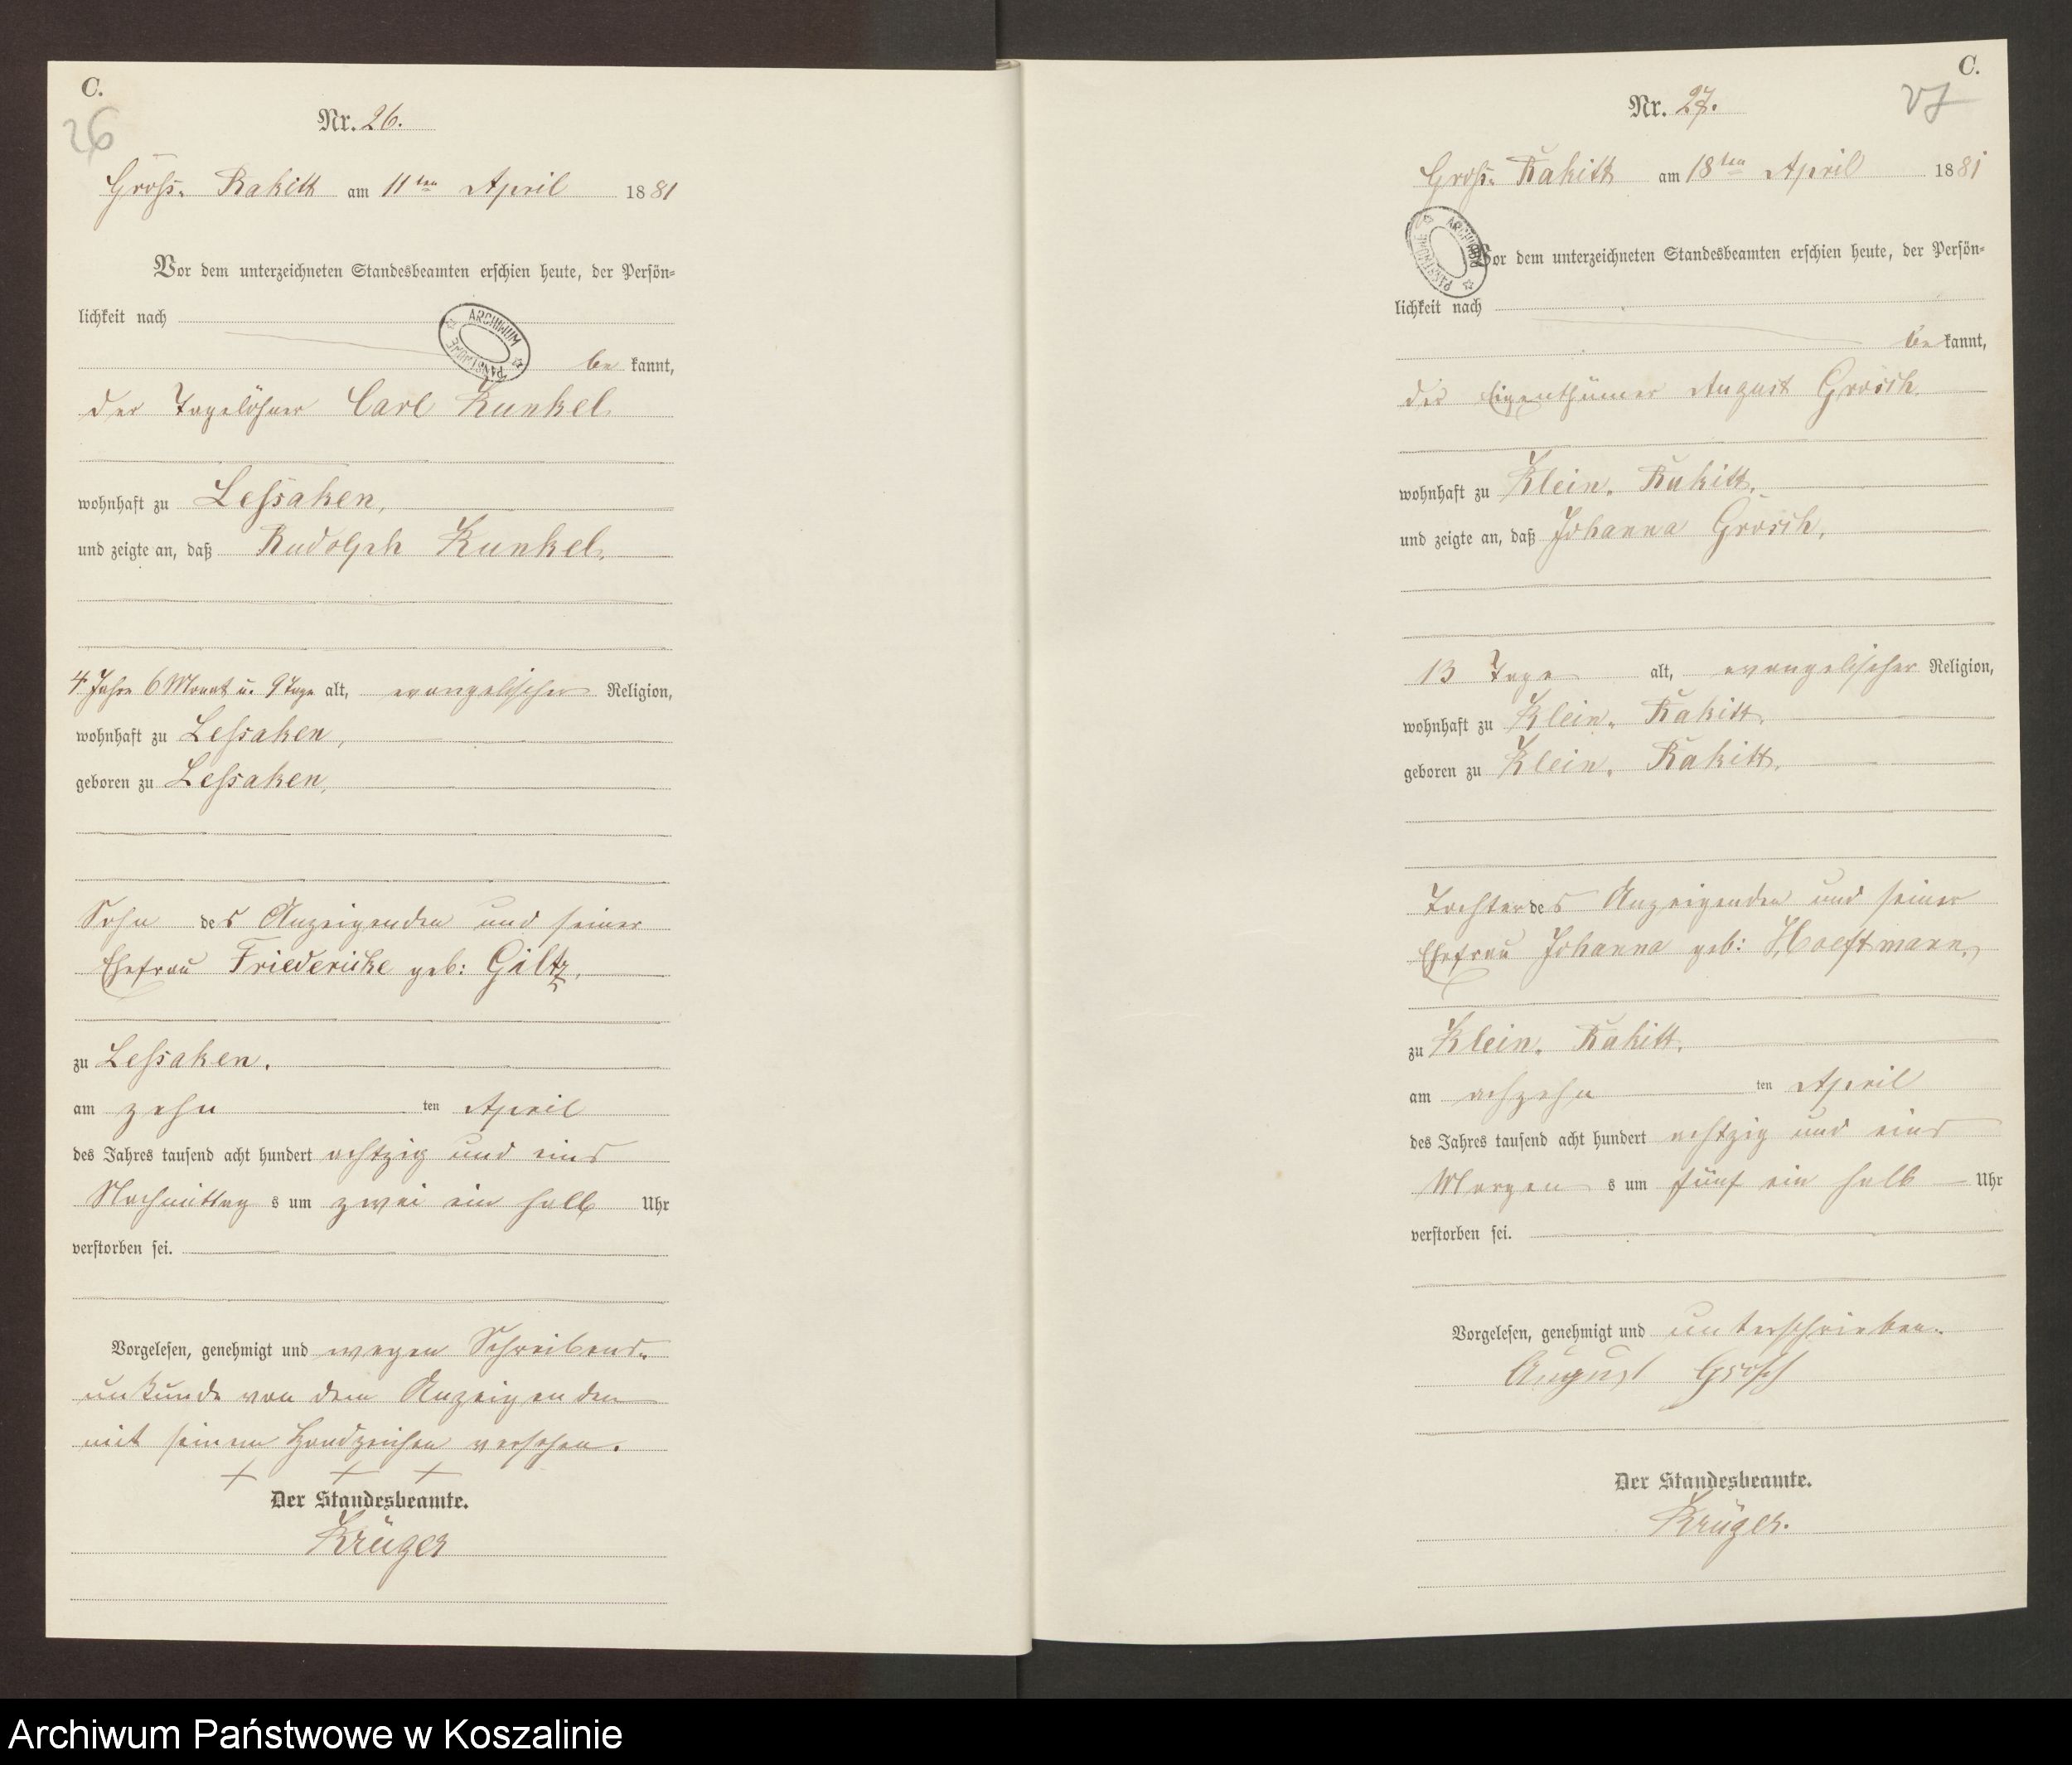 C.
26
Nr. 26.
Groß- Rakitt am 11ten April 1881
Vor dem unterzeichneten Standesbeamten erschien heute, der Persön-
lichkeit nach
ARCHIWUM PAŃSTWOWE
bekannt,
der Tagelöhner Carl Kunkel
wohnhaft zu Lessaken,
und zeigte an, daß Rudolph Kunkel,
4 Jahre 6 Monat u. 9 Tage alt, evangelischer Religion,
wohnhaft zu Lessaken,
geboren zu Lessaken,
Sohn des Anzeigenden und seiner
Ehefrau Friedericke geb: Giltz,
zu Lessaken.
am zehn ten April
des Jahres tausend acht hundert achtzig und eins
Nachmittag s um zwei ein halb Uhr
verstorben sei.
Vorgelesen, genehmigt und wegen Schreibens-
unkunde von dem Anzeigenden
mit seinem Handzeichen versehen.
+ + +
Der Standesbeamte.
Krüger
C.
27
Nr. 27.
Groß- Rakitt am 18ten April 1881
ARCHIWUM PAŃSTWOWE
Vor dem unterzeichneten Standesbeamten erschien heute, der Persön-
lichkeit nach
bekannt,
der Eigenthümer August Grosch,
wohnhaft zu Klein- Rakitt,
und zeigte an, daß Johanna Grosch,
13 Tage alt, evangelischer Religion,
wohnhaft zu Klein- Rakitt,
geboren zu Klein- Rakitt,
Tochter des Anzeigenden und seiner
Ehefrau Johanna geb: Hoeftmann,
zu Klein- Rakitt,
am achzehn ten April
des Jahres tausend acht hundert achtzig und eins
Morgen s um fünf ein halb Uhr
verstorben sei.
Vorgelesen, genehmigt und unterschrieben.
August Grosch
Der Standesbeamte.
Krüger.
Archiwum Państwowe w Koszalinie